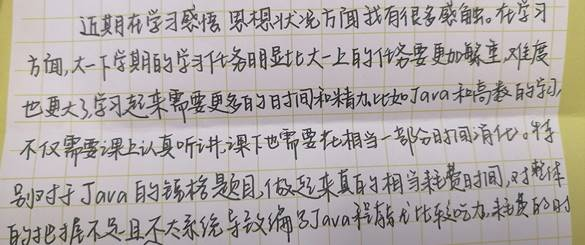 近期在学习感悟 思想状况方面我有很多感触。在学习
方面,大一下学期的学习任务明显比大一上的任务要更加繁重,难度
也更大了,学习起来需要更多的时间和精力,比如Java和高数的学习,
不仅需要课上认真听讲,课下也需要花相当一部分时间消化。特
别对于Java的题目,做起来真的相当耗费时间,对整体
的把握不足且不太系统导致编写Java程序比较吃力,耗费的时